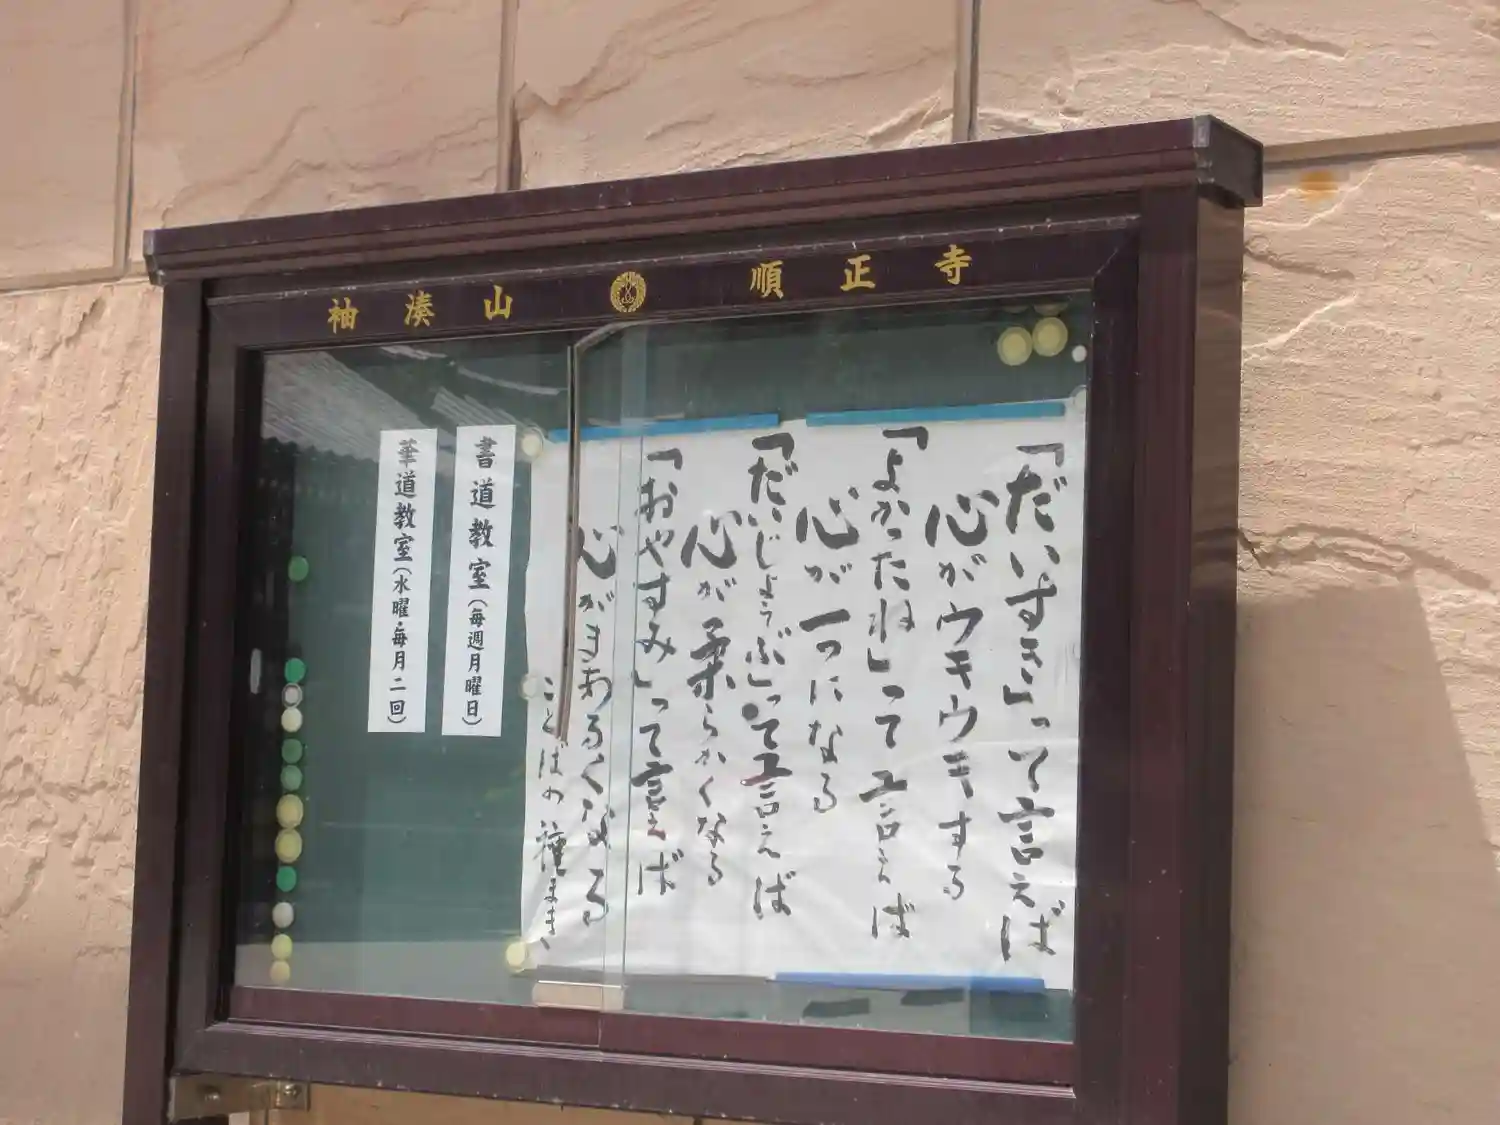 袖湊山 順正寺
「だいすき」って言えば
心がウキウキする
「よかったね」って言えば
心が一つになる
「だいじょうぶ」って言えば
心が柔らかくなる
「おやすみ」って言えば
心がまあるくなる
ことばの種まき
書道教室(毎週月曜日)
華道教室(水曜・毎月二回)